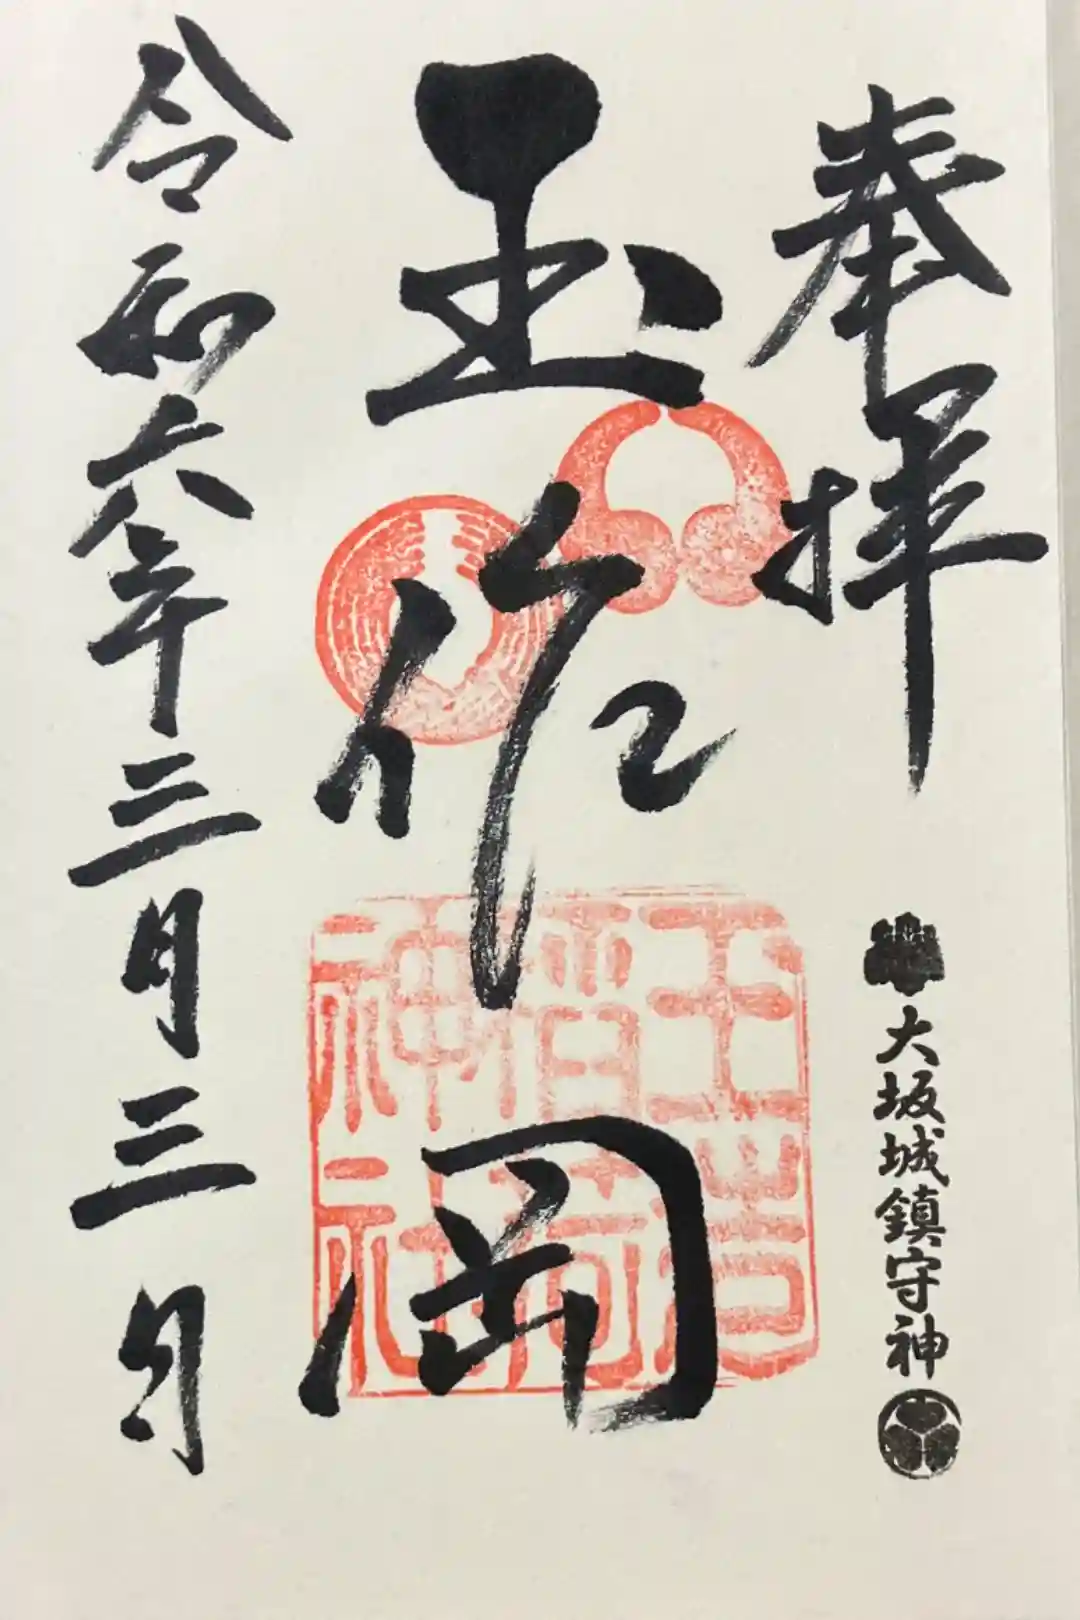 奉拝
大坂城鎮守神
玉作岡
玉造稲荷神社
令和六年三月三日